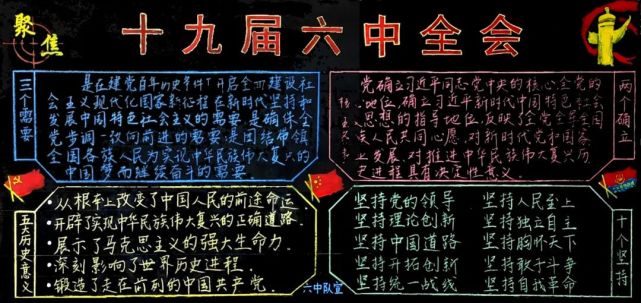 聚焦
十九届六中全会
三个需要
是在建党百年历史条件下开启全面建设社
会主义现代化国家新征程在新时代坚持和
发展中国特色社会主义的需要,是确保全
党步调一致向前进的需要是团结带领
全国各族人民为实现中华民族伟大复兴的
中国梦而继续奋斗的需要
两个确立
党确立习近平同志党中央的核心,全党的
核心地位,确立习近平新时代中国特色社会
主义思想的指导地位,反映了全党全军全国
各族人民共同心愿,对新时代党和国家
事业发展,对推进中华民族伟大复兴历
史进程具有决定性意义.
五大历史意义
从根本上改变了中国人民的前途命运
开辟了实现中华民族伟大复兴的正确道路.
展示了马克思主义的强大生命力.
深刻影响了世界历史进程.
锻造了走在前列的中国共产党.
六中队宣
十个坚持
坚持党的领导 坚持人民至上
坚持理论创新 坚持独立自主
坚持中国道路 坚持胸怀天下
坚持开拓创新 坚持敢于斗争
坚持统一战线 坚持自我革命